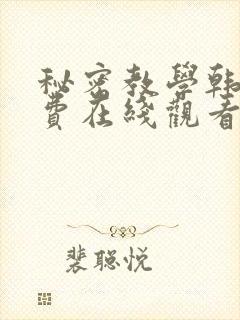 秘密教學韩
費在綫觀看
裴聪悦